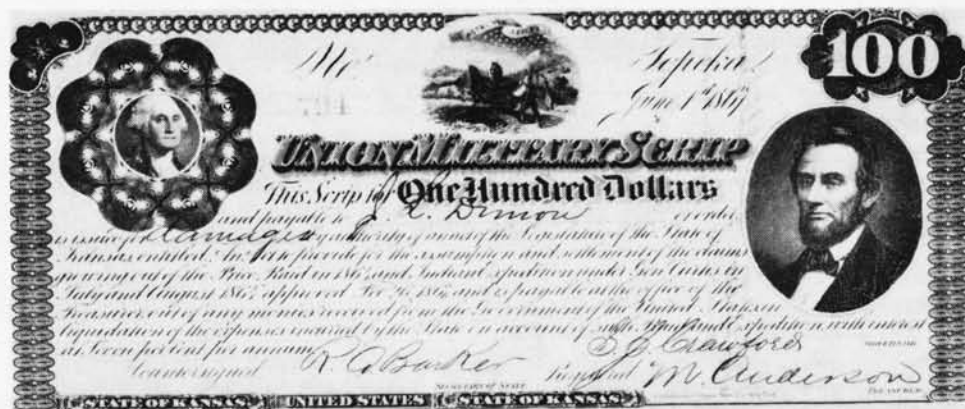 100
No.
Topeka,
794
June 1st 1867
UNION MILITARY SCRIP
This Scrip for One Hundred Dollars
and payable to J. L. Dimon or order
is issued for Damages by authority of an act of the Legislature of the State of
Kansas entitled "An Act to provide for the assumption and settlement of the claims
growing out of the Price Raid in 1864 and Indian Expedition under Gen Curtis in
July and August 1864 approved Feb 1867 and is payable at the office of the
Treasurer out of any monies received from the Government of the United States in
liquidation of the expenses incurred by the State on account of said Raid and Expedition, with interest
at Seven per cent per annum.
S. J. Crawford
GOVERNOR
Countersigned R. A. Barker
SECRETARY OF STATE
Registered M. Anderson
TREASURER
STATE OF KANSAS
UNITED STATES
STATE OF KANSAS